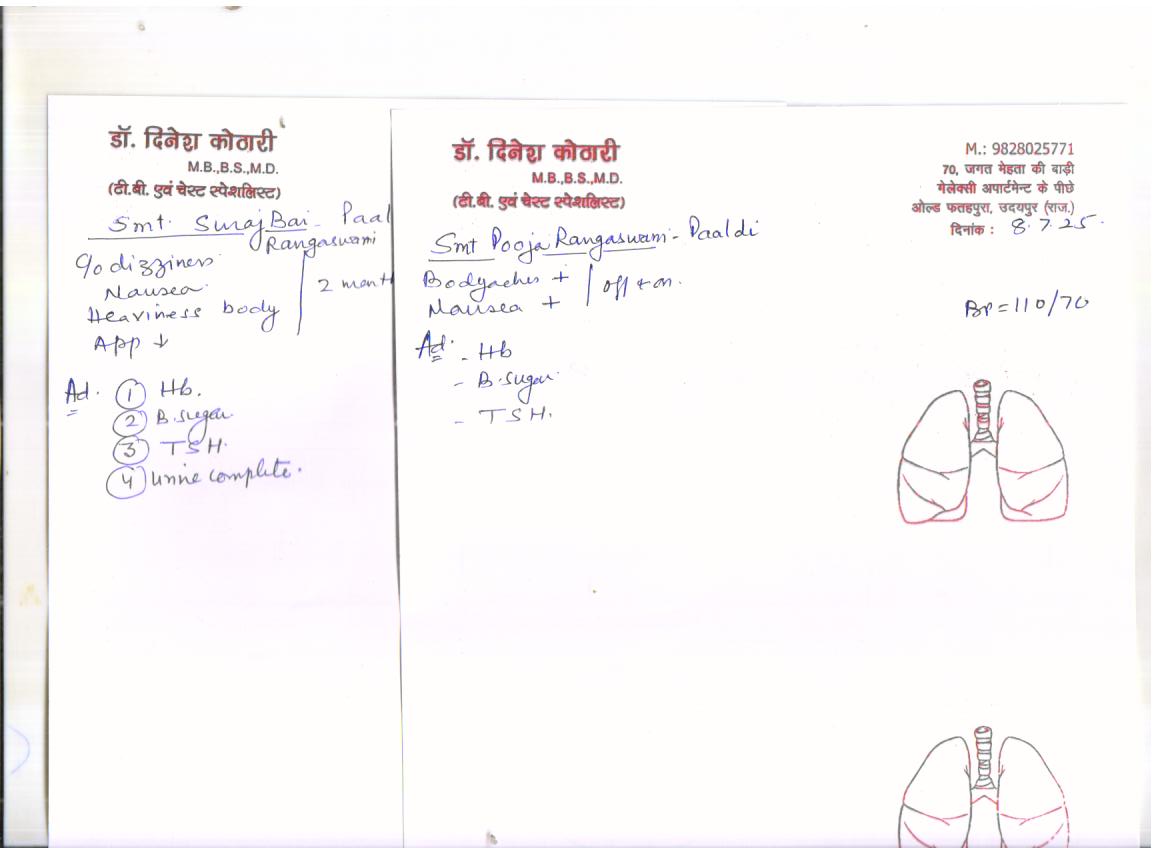 डॉ. दिनेश कोठारी
M.B.,B.S.,M.D.
(टी.बी. एवं चेस्ट स्पेशलिस्ट)
Smt. Suraj Bai - Paal
Rangaswami
C/o dizziness
Nausea
Heaviness body
2 month
App ↓
Ad. ① Hb.
② B.sugar
③ TSH.
④ Urine complete.
डॉ. दिनेश कोठारी
M.B.,B.S.,M.D.
(टी.बी. एवं चेस्ट स्पेशलिस्ट)
Smt Pooja Rangaswami - Paaldi
Bodyaches +
Nausea +
off & on.
Ad. - Hb
- B.sugar
- TSH.
M.: 9828025771
70, जगत मेहता की बाड़ी
गेलेक्सी अपार्टमेन्ट के पीछे
ओल्ड फतहपुरा, उदयपुर (राज.)
दिनांक : 8.7.25.
BP = 110/70